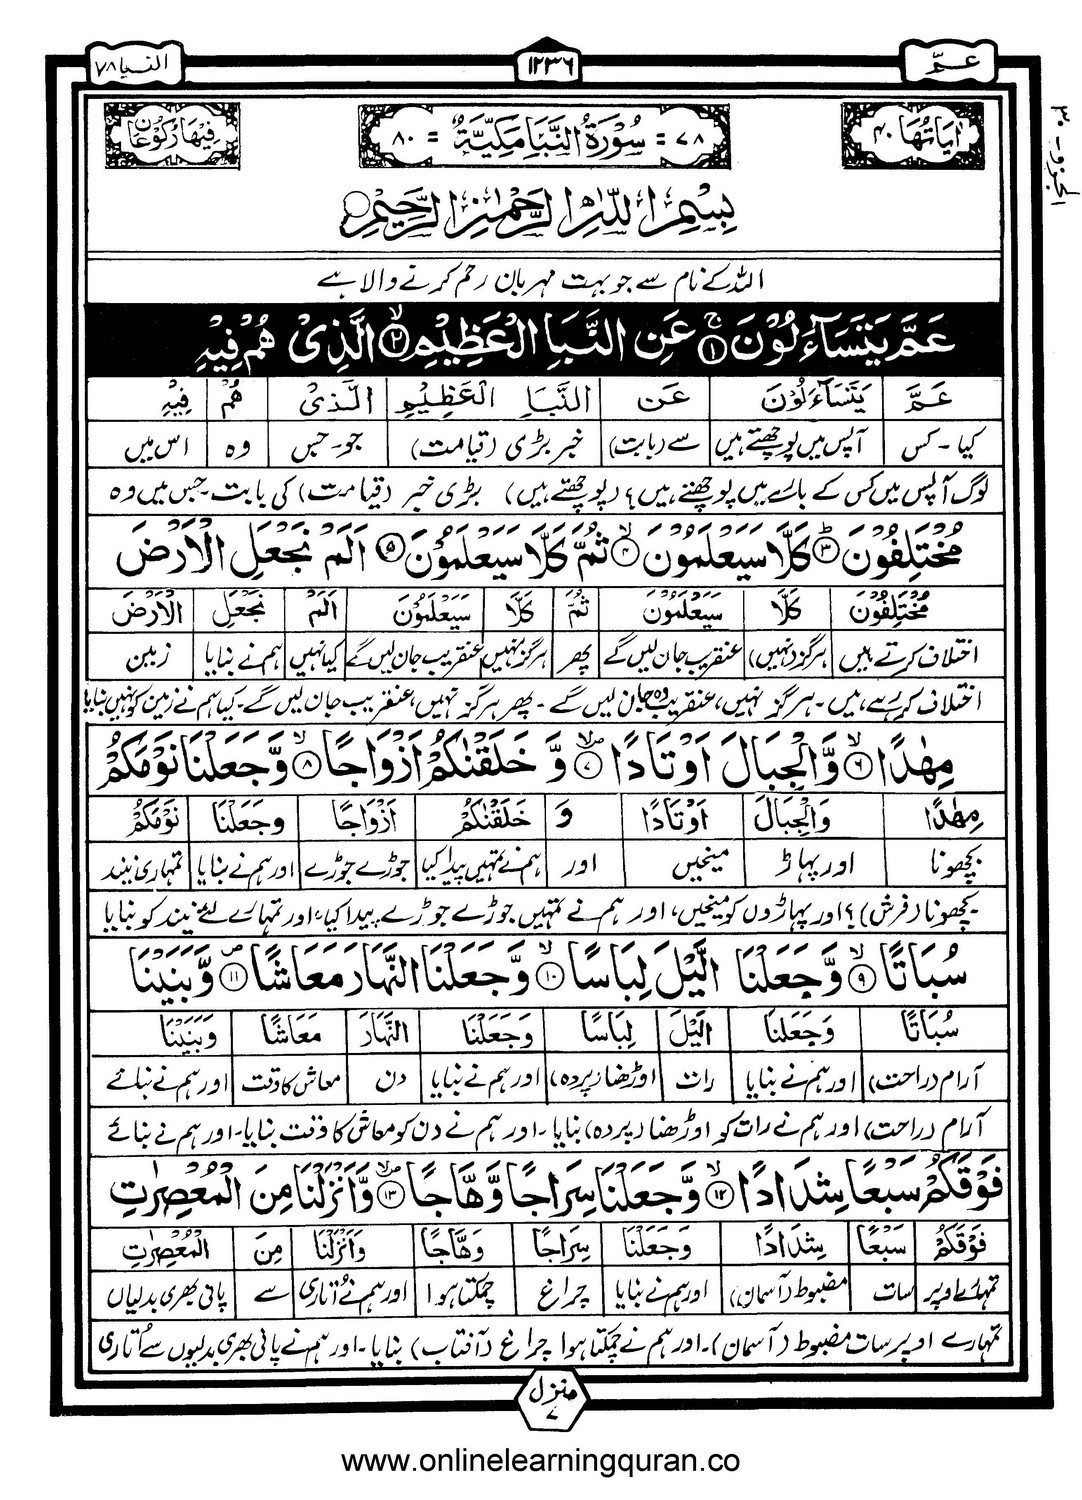 عمّ
١٢٣٦
النبا ٧٨
الجزو ٣٠
اٰیَاتُهَا ٤٠
٧٨ = سُوْرَةُ النَّبَاِ مَكِّيَّةٌ = ٨٠
فِيْهَا رُكُوْعَانِ
بِسْمِ اللّٰهِ الرَّحْمٰنِ الرَّحِيْمِ
اللہ کے نام سے جو بہت مہربان رحم کرنے والا ہے
عَمَّ يَتَسَآءَلُوْنَ ۚ﴿١﴾ عَنِ النَّبَاِ الْعَظِيْمِ ۙ﴿٢﴾ الَّذِیْ هُمْ فِيْهِ
عَمَّ يَتَسَآءَلُوْنَ عَنِ النَّبَاِ الْعَظِيْمِ الَّذِیْ هُمْ فِيْهِ
کیا - کس آپس میں پوچھتے ہیں سے (بابت) خبر بڑی (قیامت) جو - جس وہ اس میں
لوگ آپس میں کس کے بارے میں پوچھتے ہیں؟ (پوچھتے ہیں) بڑی خبر (قیامت) کی بابت - جس میں وہ
مُخْتَلِفُوْنَ ؕ﴿٣﴾ كَلَّا سَيَعْلَمُوْنَ ۙ﴿٤﴾ ثُمَّ كَلَّا سَيَعْلَمُوْنَ ﴿٥﴾ اَلَمْ نَجْعَلِ الْاَرْضَ
مُخْتَلِفُوْنَ كَلَّا سَيَعْلَمُوْنَ ثُمَّ كَلَّا سَيَعْلَمُوْنَ اَلَمْ نَجْعَلِ الْاَرْضَ
اختلاف کرتے ہیں ہرگز (نہیں) عنقریب جان لیں گے پھر ہرگز نہیں عنقریب جان لیں گے کیا نہیں ہم نے بنایا زمین
اختلاف کررہے ہیں - ہرگز نہیں، عنقریب وہ جان لیں گے - پھر ہرگز نہیں، عنقریب جان لیں گے - کیا ہم نے زمین کو نہیں بنایا
مِهٰدًا ۙ﴿٦﴾ وَّالْجِبَالَ اَوْتَادًا ۪ۙ﴿٧﴾ وَّ خَلَقْنٰكُمْ اَزْوَاجًا ۙ﴿٨﴾ وَّجَعَلْنَا نَوْمَكُمْ
مِهٰدًا وَالْجِبَالَ اَوْتَادًا وَ خَلَقْنٰكُمْ اَزْوَاجًا وَجَعَلْنَا نَوْمَكُمْ
بچھونا اور پہاڑ میخیں اور ہم نے تمہیں پیدا کیا جوڑے جوڑے اور ہم نے بنایا تمہاری نیند
بچھونا (فرش)؟ اور پہاڑوں کو میخیں، اور ہم نے تمہیں جوڑے جوڑے پیدا کیا، اور تمہارے لئے نیند کو بنایا
سُبَاتًا ۙ﴿٩﴾ وَّجَعَلْنَا الَّيْلَ لِبَاسًا ۙ﴿١٠﴾ وَّجَعَلْنَا النَّهَارَ مَعَاشًا ۪﴿١١﴾ وَّبَنَيْنَا
سُبَاتًا وَجَعَلْنَا الَّيْلَ لِبَاسًا وَجَعَلْنَا النَّهَارَ مَعَاشًا وَبَنَيْنَا
آرام (راحت) اور ہم نے بنایا رات اوڑھنا (پردہ) اور ہم نے بنایا دن معاش کا وقت اور ہم نے بنائے
آرام (راحت) اور ہم نے رات کو اوڑھنا (پردہ) بنایا - اور ہم نے دن کو معاش کا وقت بنایا - اور ہم نے بنائے
فَوْقَكُمْ سَبْعًا شِدَادًا ۙ﴿١٢﴾ وَّجَعَلْنَا سِرَاجًا وَّهَّاجًا ۪ۙ﴿١٣﴾ وَّاَنْزَلْنَا مِنَ الْمُعْصِرٰتِ
فَوْقَكُمْ سَبْعًا شِدَادًا وَجَعَلْنَا سِرَاجًا وَهَّاجًا وَاَنْزَلْنَا مِنَ الْمُعْصِرٰتِ
تمہارے اوپر سات مضبوط (آسمان) اور ہم نے بنایا چراغ چمکتا ہوا اور ہم نے اُتاری سے پانی بھری بدلیاں
تمہارے اوپر سات مضبوط (آسمان) - اور ہم نے چمکتا ہوا چراغ (آفتاب) بنایا - اور ہم نے پانی بھری بدلیوں سے اُتاری
منزل
٧
www.onlinelearningquran.co